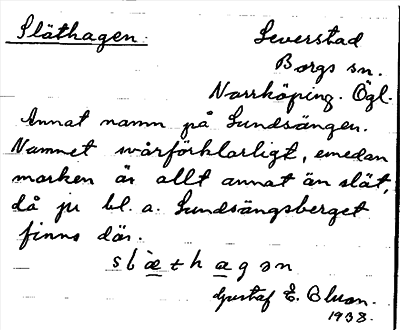 Släthagen.
Leverstad
Borgs sn.
Norrköping. Ögl.
Annat namn på Lundsängen.
Namnet svårförklarligt, emedan
marken är allt annat än slät,
då ju bl. a. Lundsängsberget
finns där.
slæthagən
Gustaf E. Bluon.
1938.